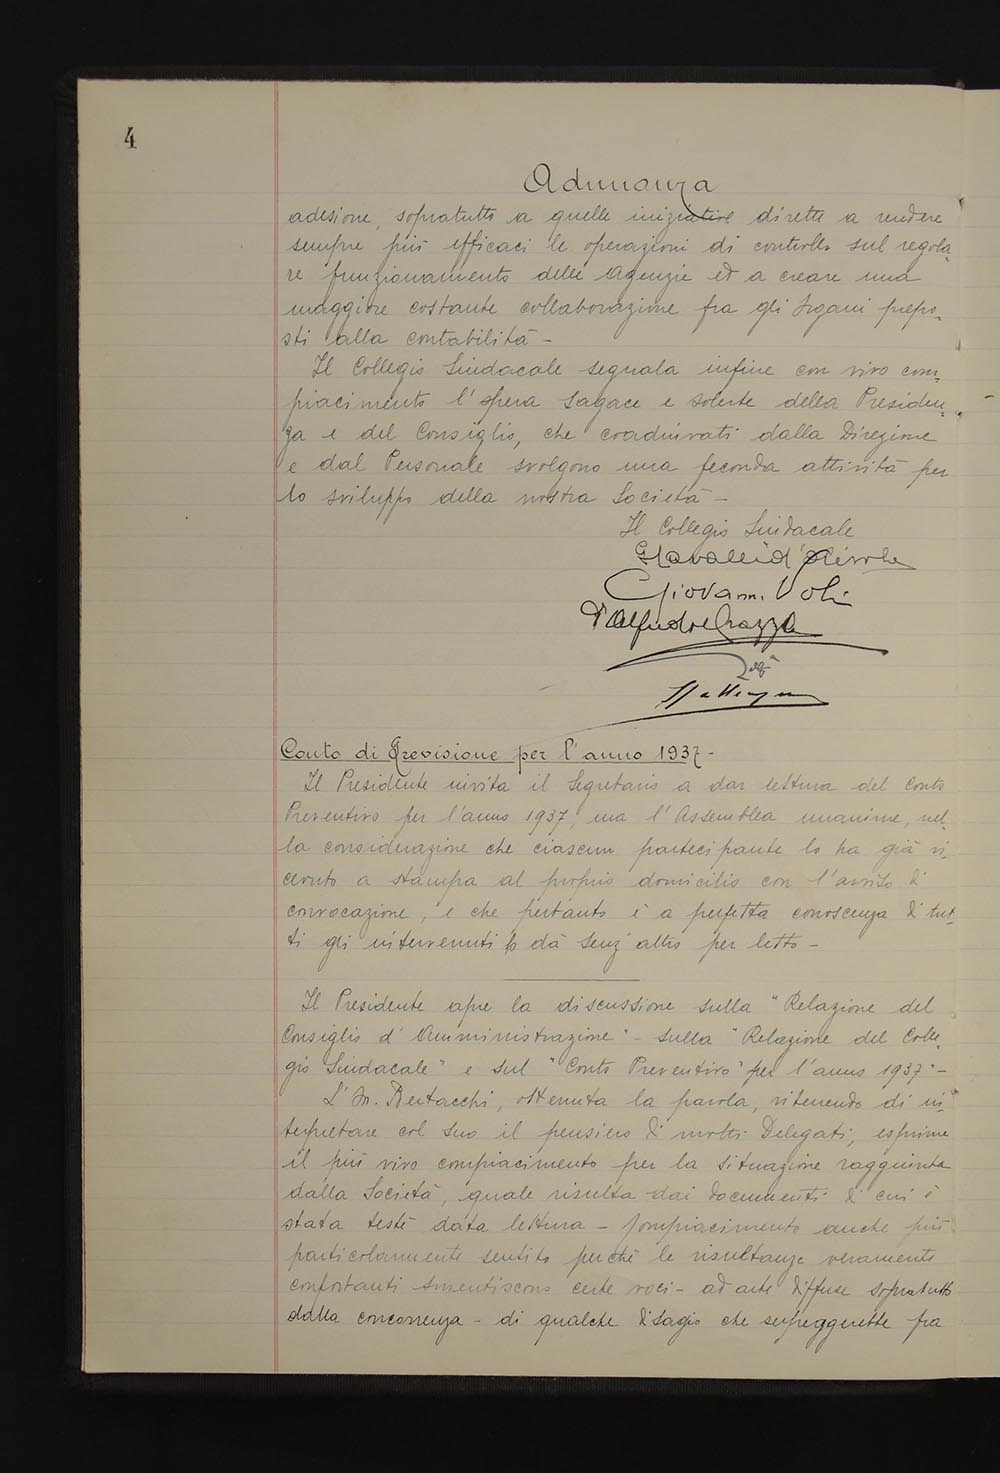 4
Adunanza
adesione, sopratutto a quelle iniziative dirette a rendere
sempre più efficaci le operazioni di controllo sul regola-
re funzionamento delle Agenzie ed a creare una
maggiore costante collaborazione fra gli Organi prepo-
sti alla contabilità -
Il Collegio Sindacale segnala infine con vivo com-
piacimento l'opera sagace e solerte della Presiden-
za e del Consiglio, che coadiuvati dalla Direzione
e dal Personale svolgono una feconda attività per
lo sviluppo della nostra Società -
Il Collegio Sindacale
Giovanni Voli
Conto di Previsione per l'anno 1937 -
Il Presidente invita il Segretario a dar lettura del Conto
Preventivo per l'anno 1937, ma l'Assemblea unanime, nel-
la considerazione che ciascun partecipante lo ha già ri-
cevuto a stampa al proprio domicilio con l'avviso di
convocazione, e che pertanto è a perfetta conoscenza di tut-
ti gli intervenuti lo dà senz'altro per letto -
Il Presidente apre la discussione sulla "Relazione del
Consiglio d'Amministrazione" - sulla "Relazione del Colle-
gio Sindacale" e sul "Conto Preventivo per l'anno 1937" -
L'On. Bertacchi, ottenuta la parola, ritenendo di in-
terpretare col suo il pensiero di molti Delegati, esprime
il più vivo compiacimento per la situazione raggiunta
dalla Società, quale risulta dai documenti di cui è
stata testè data lettura - Compiacimento anche più
particolarmente sentito perchè le risultanze veramente
confortanti smentiscono certe voci - ad arte diffuse sopratutto
dalla concorrenza - di qualche disagio che serpeggerebbe fra